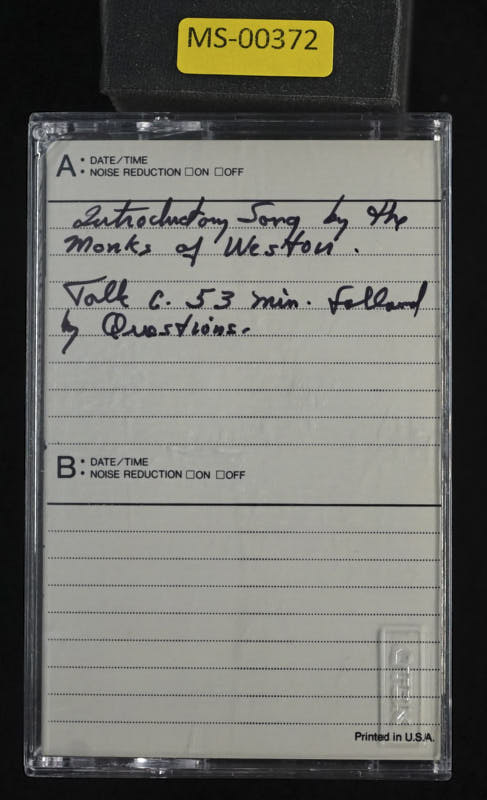 MS-00372
A: DATE/TIME
NOISE REDUCTION □ON □OFF
Introductory Song by the
Monks of Weston.
Talk c. 53 min. followed
by Questions.
B: DATE/TIME
NOISE REDUCTION □ON □OFF
Printed in U.S.A.